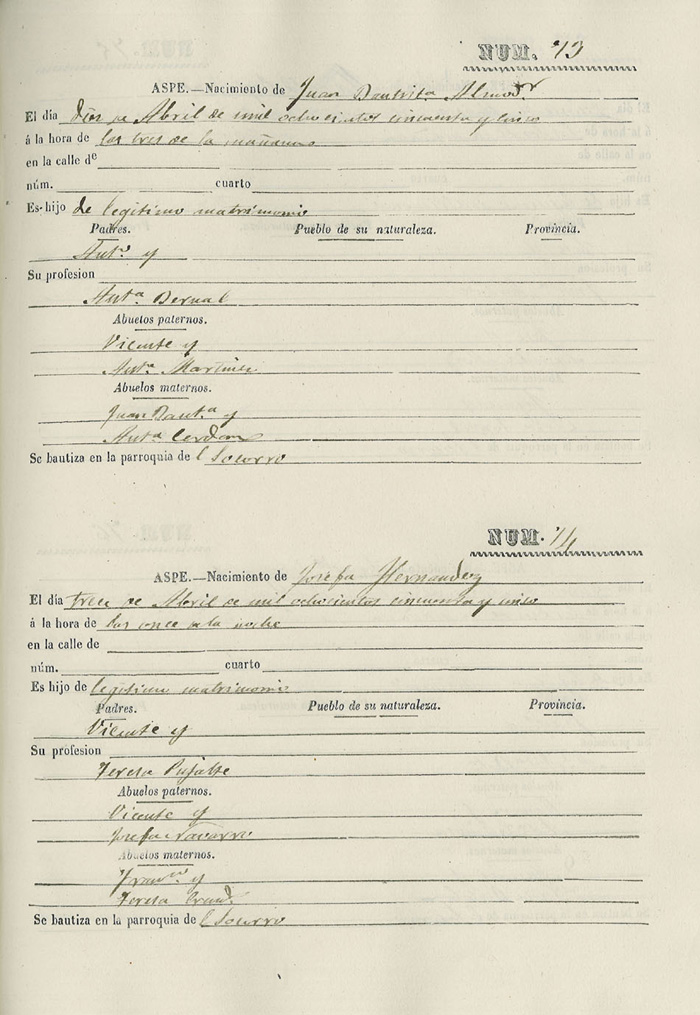 NUM. 73
ASPE.—Nacimiento de Juan Bautista Almodr
El día Dies de Abril de mil ochocientos cincuenta y cinco
á la hora de las tres de la mañana
en la calle de
núm. cuarto
Es hijo de legitimo matrimonio
Padres. Pueblo de su naturaleza. Provincia.
Anto. y
Su profesion
Anta Bernal
Abuelos paternos.
Vicente y
Anta Martinez
Abuelos maternos.
Juan Bauta y
Anta Cerdan
Se bautiza en la parroquia de l Socorro
NUM. 74
ASPE.—Nacimiento de Josefa Hernandez
El día trece de Abril de mil ochocientos cincuenta y cinco
á la hora de las once de la noche
en la calle de
núm. cuarto
Es hijo de legitimo matrimonio
Padres. Pueblo de su naturaleza. Provincia.
Vicente y
Su profesion
Teresa Pujalte
Abuelos paternos.
Vicente y
Josefa Navarro
Abuelos maternos.
Franco. y
Teresa
Se bautiza en la parroquia de l Socorro